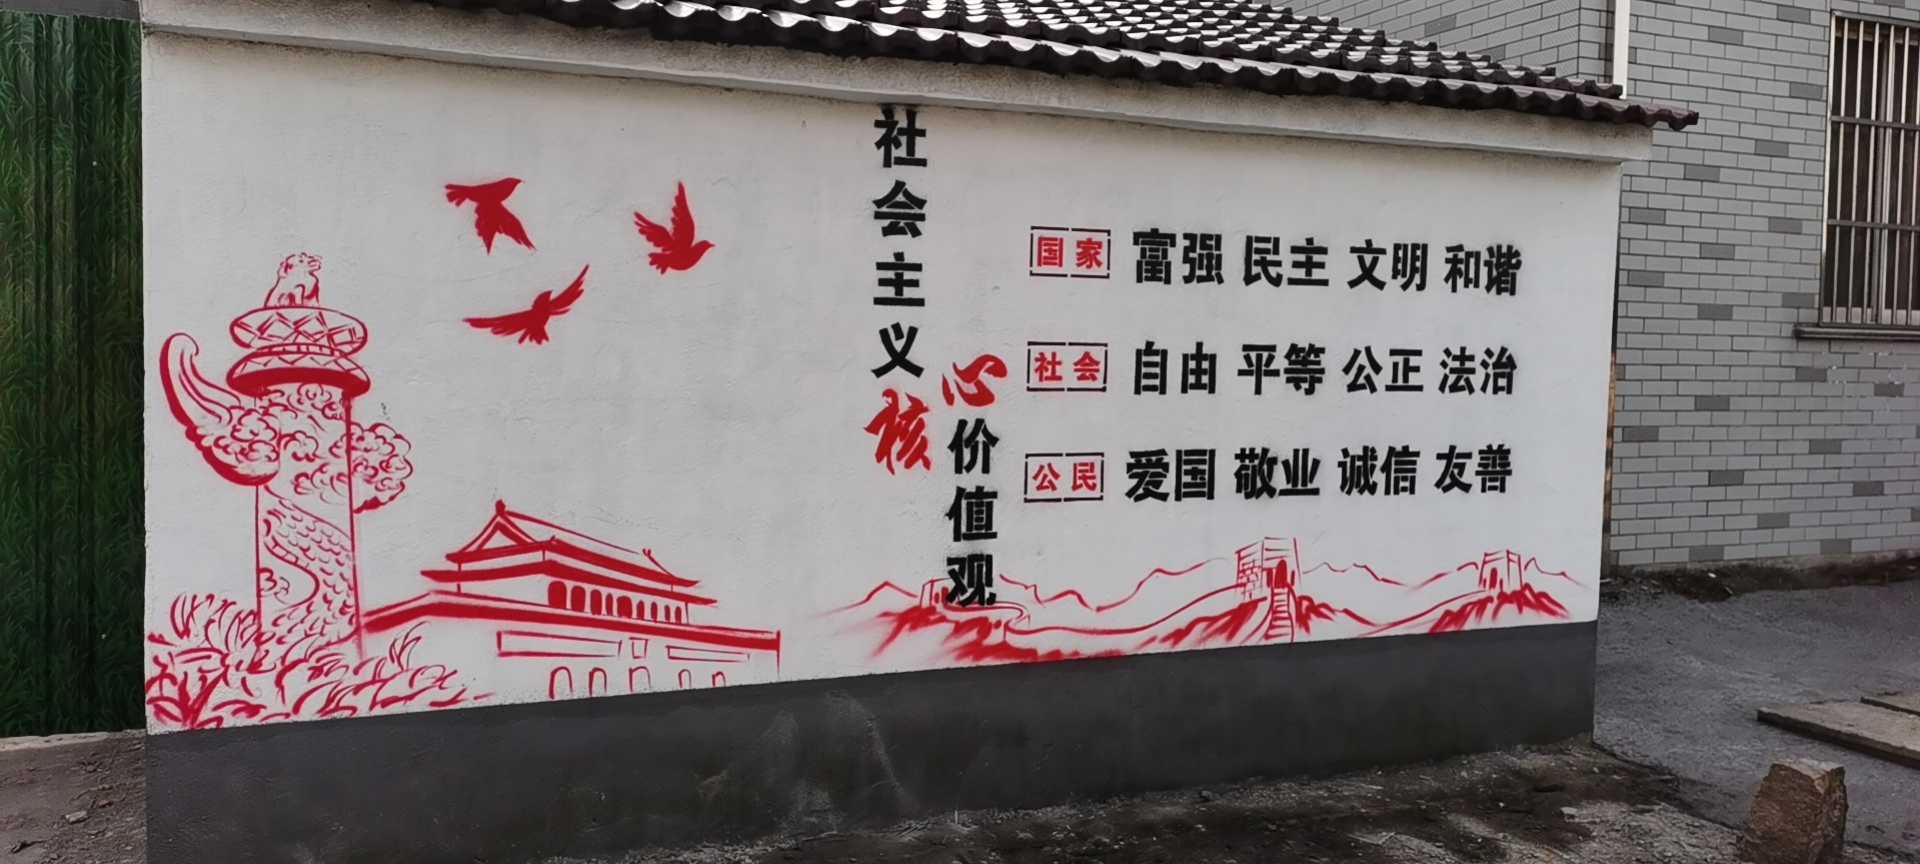 社会主义核
心价值观
国家 富强 民主 文明 和谐
社会 自由 平等 公正 法治
公民 爱国 敬业 诚信 友善